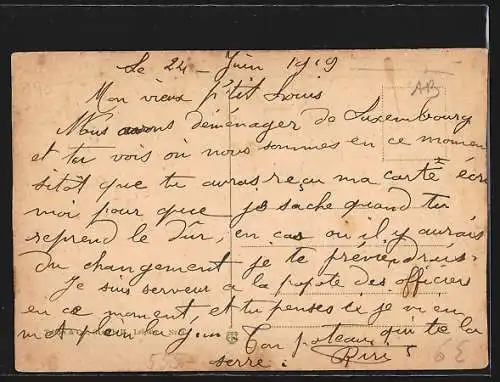 Le 24 - Juin 1919
Mon vieux p'tit Louis
AB
Nous avons déménager de Luxembourg
et tu vois où nous sommes en ce momen
sitôt que tu auras reçu ma carte écri
moi pour que je sache quand tu
reprend le dur, en cas où il y aurais
du changement je te préviendrais
Je suis serveur a la popote des officiers
en ce moment, et tu penses si je vi en
met plein la
Ton poteau qui te la
serre
Riri
6E